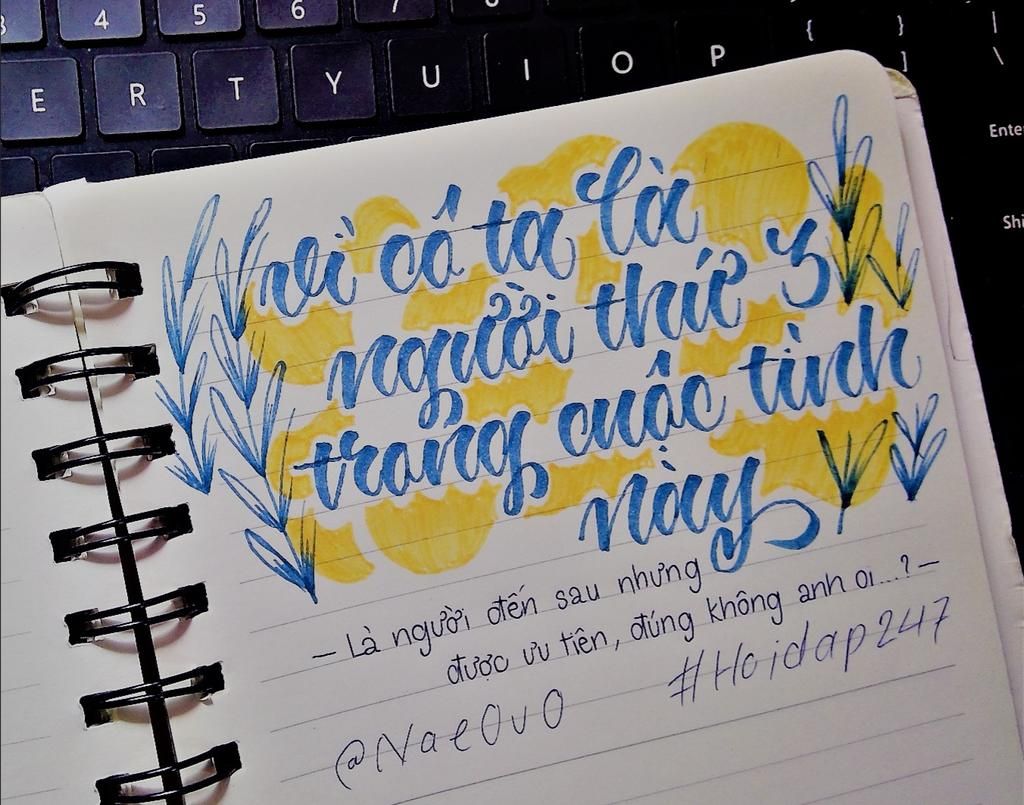 3 4 5 6 7
E R T Y U I O P { }
[ ] | \
Ente
Shi
vì cô ta là
người thứ 3
trong cuộc tình
này
– Là người đến sau nhưng
được ưu tiên, đúng không anh ơi...? –
@NaeOvO #Hoidap247